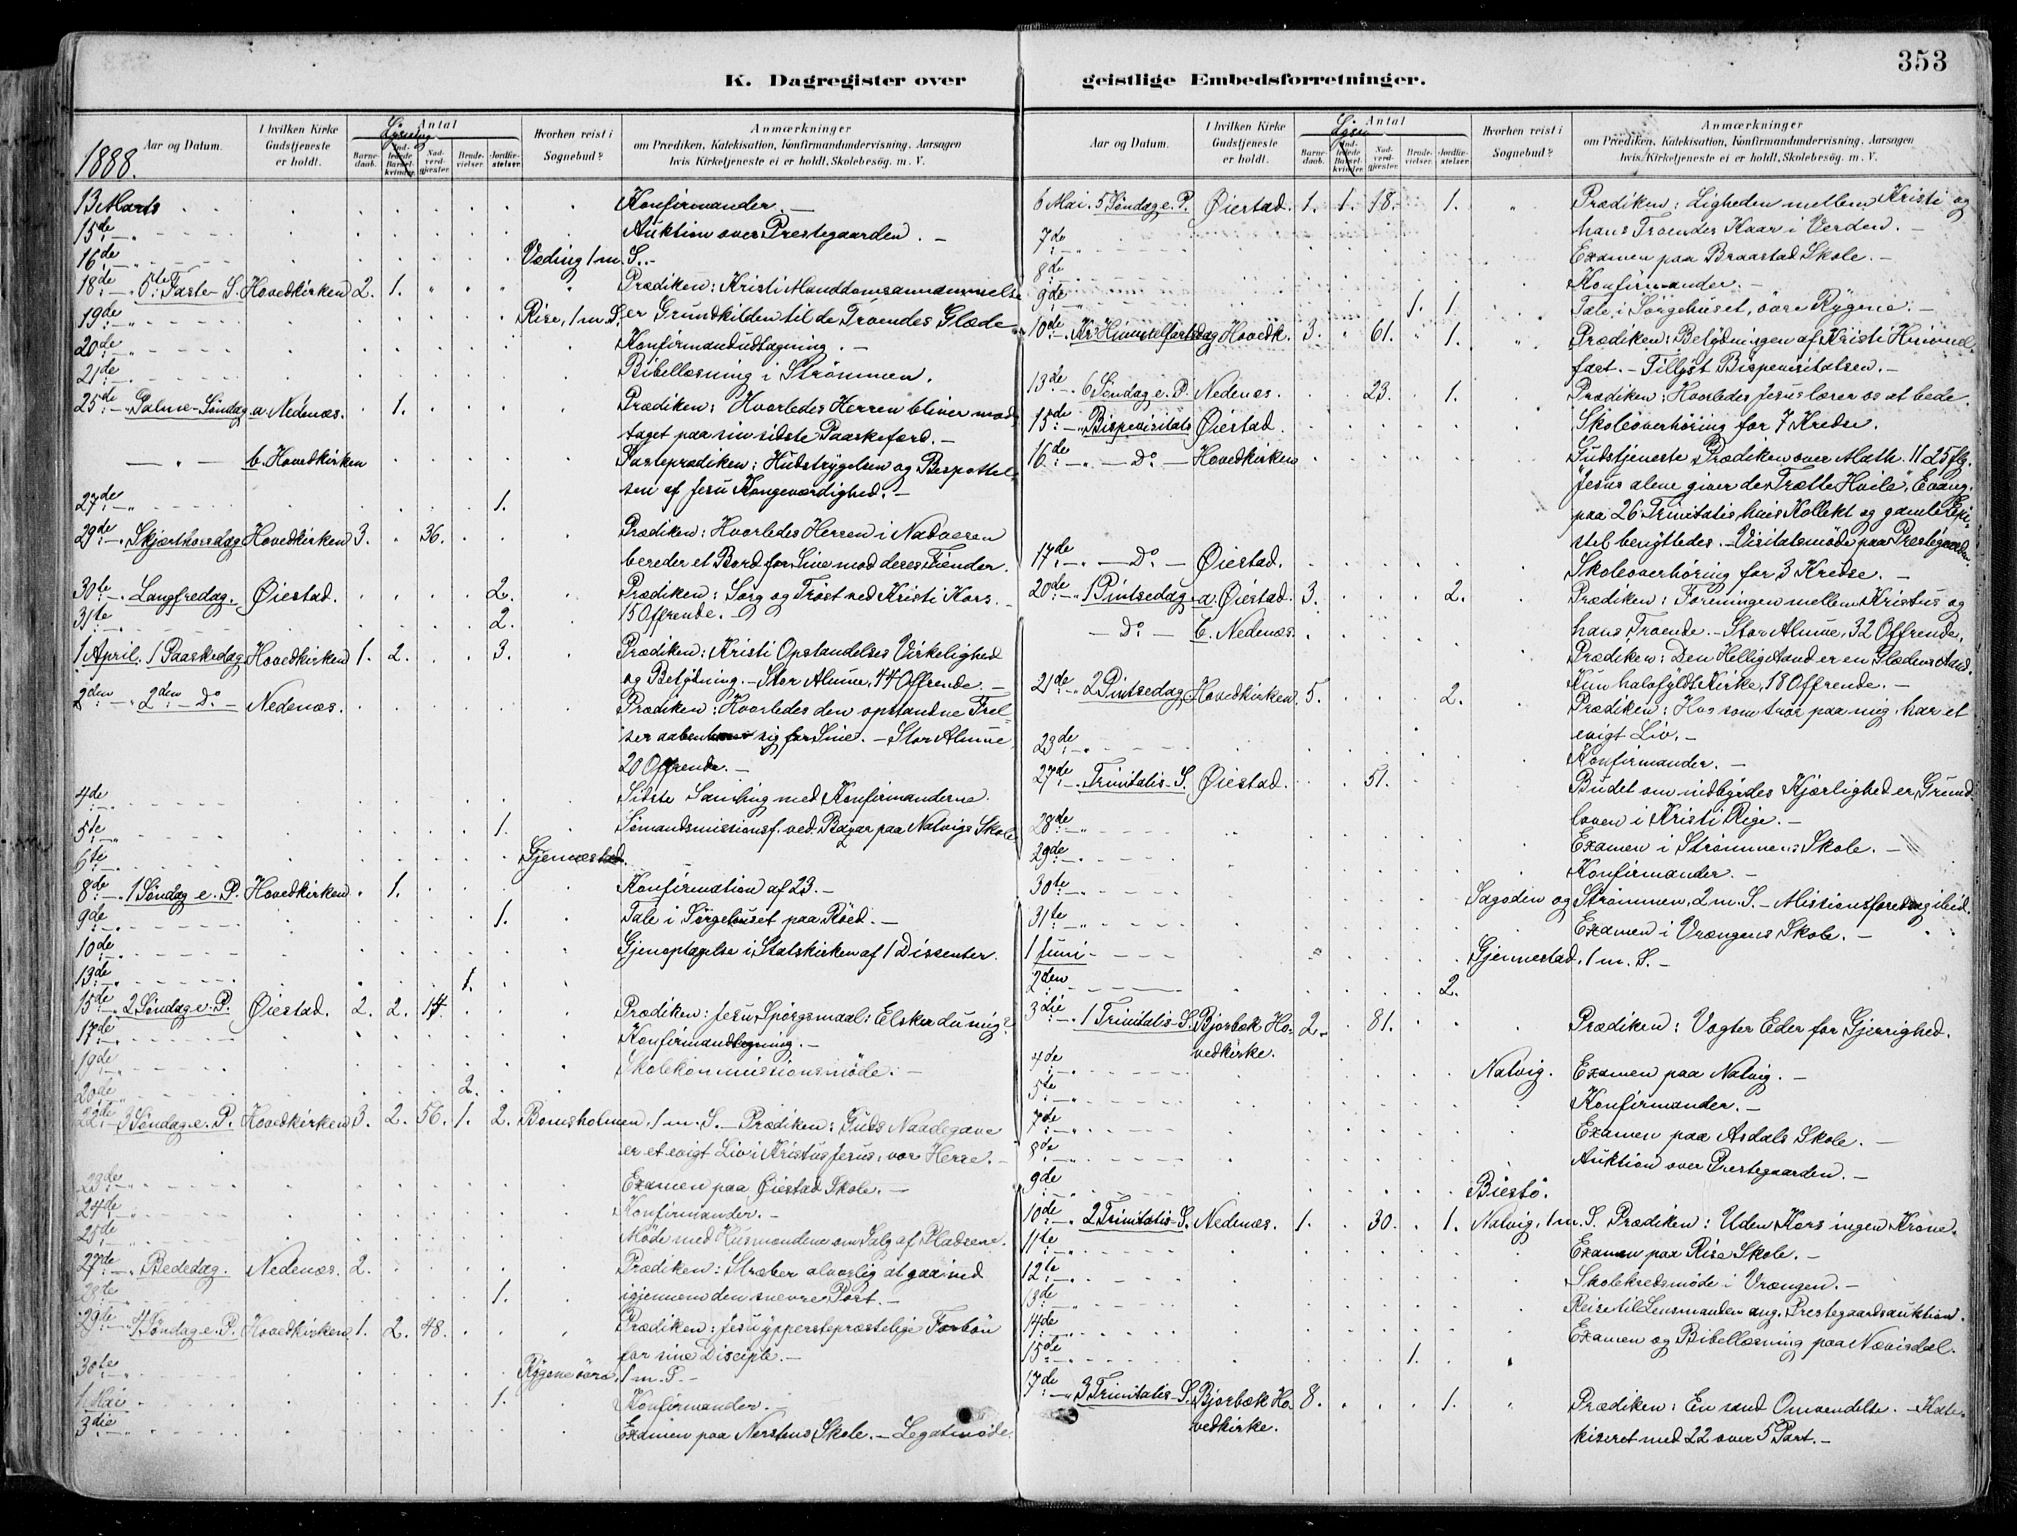 353
K. Dagregister over geistlige Embedsforretninger.
Aar og Datum. I hvilken Kirke Gudstjeneste er holdt. Antal Barnedaab. Indledede Barselkvinder. Nadverdgjæster. Brudevielser. Jordfæstelser. Hvorhen reist i Sognebud? Anmærkninger om Prædiken, Katekisation, Konfirmandundervisning, Aarsagen hvis Kirketjeneste ei er holdt, Skolebesøg. m. V.
1888.
13 Marts Konfirmander. —
15de Auktion over Prestegaarden. —
16de Væding 1 m. S. —
18de 5te Faste S. Hovedkirken 2. 1. Prædiken: Kristi Manddomsannammelse
19de Rise, 1 m. S. er Grundkilden til de Troendes Glæde
20de Konfirmandudtagning. —
21de Bibellæsning i Strømmen.
25de Palme-Søndag a. Nedenæs. 1. Prædiken: Hvorledes Herren bliver mod-
taget paa sin sidste Paaskefærd. —
— " — b. Hovedkirken Fasteprædiken: Hudstrygelsen og Bespottel-
sen af Jesu Kongeværdighed. —
27de 1.
29de Skjærthorsdag Hovedkirken 3. 36. Prædiken: Hvorledes Herren i Nadveren
bereder et Bord for Sine mod deres Fiender.
30te Langfredag. Øiestad. 2. Prædiken: Sorg og Trøst ved Kristi Kors. —
31te 2. 15 Offrende. —
1 April. 1 Paaskedag Hovedkirken 1. 2. 3. Prædiken: Kristi Opstandelses Virkelighed
og Betydning. — Stor Almue, 44 Offrende. —
2den 2den Do — Nedenæs. Prædiken: Hvorledes den opstandne Frel-
ser aabenbarer sig for Sine. — Stor Almue
20 Offrende. —
4de Sidste Samling med Konfirmanderne.
5te 1. Sømandsmissionsf. ved Bazar paa Natvigs Skole
6te Gjennestad.
8de 1 Søndag e. P. Hovedkirken 1. Konfirmation af 23. —
9de 1. Tale i Sørgehuset paa Røed. —
10de Gjenoptagelse i Statskirken af 1 Dissenter.
13de 1.
15de 2 Søndag e. P. Øiestad. 2. 2. 14. Prædiken: Jesu Spørgsmaal: Elsker du mig?
17de Konfirmandtegning. —
19de Skolekommissionsmøde. —
20de 2.
22de 3 Søndag e. P. Hovedkirken 3. 2. 56. 1. 2. Bomsholmen, 1 m. S. — Prædiken: Guds Naadegave
er et evigt Liv i Kristus Jesus, vor Herre. —
23de Examen paa Øiestad Skole. —
24de Konfirmander. —
25de Møde med Husmændene om Salg af Pladsene.
27de Bededag. Nedenæs. 2. Prædiken: Stræber alvorlig at gaa ind
28de 1. igjennem den snevre Port. —
29de 4 Søndag e. P. Hovedkirken 1. 2. 48. Prædiken: Jesu ypperstepræstelige Forbøn
for sine Disciple. —
30te Rygene øvre, 1 m. P. —
1 Mai 1. Konfirmander. —
3die Examen paa Nerstens Skole. — Legatmøde.
6 Mai. 5 Søndag e. P. Øiestad. 1. 1. 18. 1. Prædiken: Ligheden mellem Kristi og
7de hans Troendes Kaar i Verden. —
8de Examen paa Braastad Skole. —
9de 1. 1. Konfirmander. —
Tale i Sørgehuset, øvre Rygene. —
10de Kr. Himmelfartsdag Hovedk. 3. 61. 1. Prædiken: Betydningen af Kristi Himmel-
fart. — Tillyst Bispevisitatsen. —
13de 6 Søndag e. P. Nedenæs. 23. 1. Prædiken: Hvorledes Jesus lærer os at bede.
15de Bispevisitats Øiestad. Skoleoverhøring for 7 Kredse.
16de — Do — Hovedkirken Gudstjeneste, Prædiken over Math. 11 25 flg.
"Jesus alene giver de Trætte Hvile", Evang.
paa 26 Trinitatis, hvis Kollekt og gamle Epi-
stel benyttedes. — Visitatsmøde paa Prestegaarden.
17de — Do — Øiestad. Skoleoverhøring for 3 Kredse. —
20de 1 Pintsedag a. Øiestad. 3. 2. Prædiken: Foreningen mellem Kristus og
hans Troende. — Stor Almue, 32 Offrende.
— Do — b. Nedenæs. Prædiken: Den Hellig Aand er en Glædens Aand.
Kun halvfyldt Kirke, 18 Offrende. —
21de 2 Pintsedag Hovedkirken. 5. 2. Prædiken: Hver som tror paa mig, har et
evigt Liv. —
23de Konfirmander. —
27de Trinitatis S. Øiestad. 51. Budet om indbyrdes Kjærlighed er Grund-
loven i Kristi Rige. —
28de Examen i Strømmens Skole. —
29de Konfirmander. —
30te Sagoden og Strømmen, 2 m. S. — Missionsforedrag
31te Examen i Vrængens Skole. —
1 Juni Gjennestad, 1 m. S. —
2den 2.
3die 1 Trinitatis S. Bjorbæk Ho- 2. 81. Prædiken: Vogter Eder for Gjerrighed.
vedkirke.
4de Natvig. Examen paa Natvig. —
5te Konfirmander. —
7de Examen paa Asdals Skole. —
8de Auktion over Prestegaarden. —
9de Biestø.
10de 2 Trinitatis S. Nedenæs. 1. 30. 1. Natvig, 1 m. S. Prædiken: Uden Kors ingen Krone.
11te Examen paa Rise Skole. —
12te Skolekredsmøde i Vrængen. —
13de Reise til Lensmanden ang. Prestegaardsauktion.
14de Examen og Bibellæsning paa Nævisdal.
15de 1.
17de 3 Trinitatis S. Bjorbæk Ho- 8. 1. Prædiken: En sand Omvendelse. — Kate-
vedkirke. kiseret med 22 over 5 Part. —